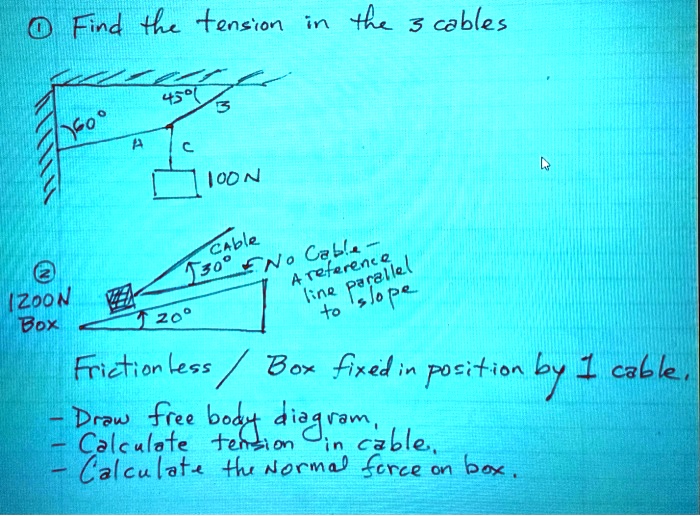 ① Find the tension in the 3 cables
45°
B
60°
A
C
100N
② 
CAble
30°
No Cable -
A reference
line parallel
to slope
1200N
Box
20°
Frictionless / Box fixed in position by 1 cable.
- Draw free body diagram,
- Calculate tension in cable,
- Calculate the Normal force on box.